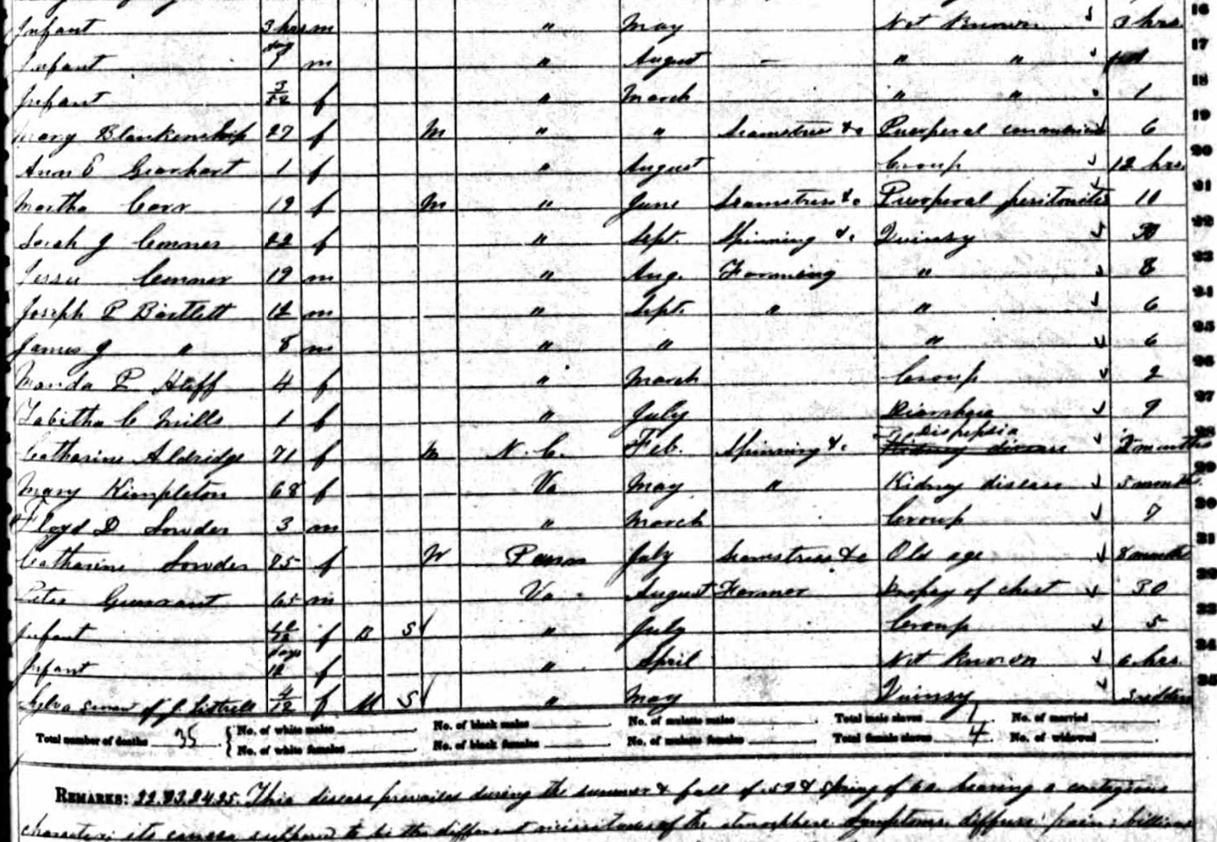 16
Infant 3 hrs m " May Not Known ✓ 3 hrs.
17
Infant m " August – " " ✓
18
Infant 3/12 f " March " " 1
19
Mary Blankenship 27 f M " " Seamstress &c Puerperal ✓ 6
20
Ann E Gearhart 1 f " August Croup ✓ 12 hrs.
21
Martha Corr 19 f M " June Seamstress &c Puerperal peritonitis 10
22
Sarah J Conner 22 f " Sept. Spinning &c Quinsy ✓
23
Conner 19 m " Aug. Farming " ✓ 8
24
Joseph P Bartlett 12 m " Sept. " " ✓ 6
25
James J " 8 m " " " ✓ 6
26
P 4 f " March Croup ✓ 2
27
Tabitha C Mills 1 f " July Diarrhea ✓ 9
28
Catharine Aldridge 71 f M N. C. Feb. Spinning &c Dispepsia ✓ 2 months
29
Mary Kimpleton 68 f Va May " Kidney disease ✓ 5 months
30
Floyd D Sowder 3 m " March Croup ✓ 7
31
Catharine Sowder f W Penn July Seamstress &c Old age ✓ 8 months
32
65 m Va. August Farmer Dropsy of chest ✓ 30
33
Infant f B S " July Croup ✓ 5
34
Infant days f " April Not Known ✓ 6 hrs.
35
4/12 f M S " May Quinsy ✓
Total number of deaths 35 { No. of white males No. of black males No. of mulatto males Total male slaves 1 No. of married
{ No. of white females No. of black females No. of mulatto females Total female slaves 4 No. of widowed
REMARKS: 22.23.24.25. This disease prevailed during the summer & fall of 59 & Spring of 60. bearing a contagious
character; its causes to be the different of the atmosphere. Symptoms, diffuse pain; billious